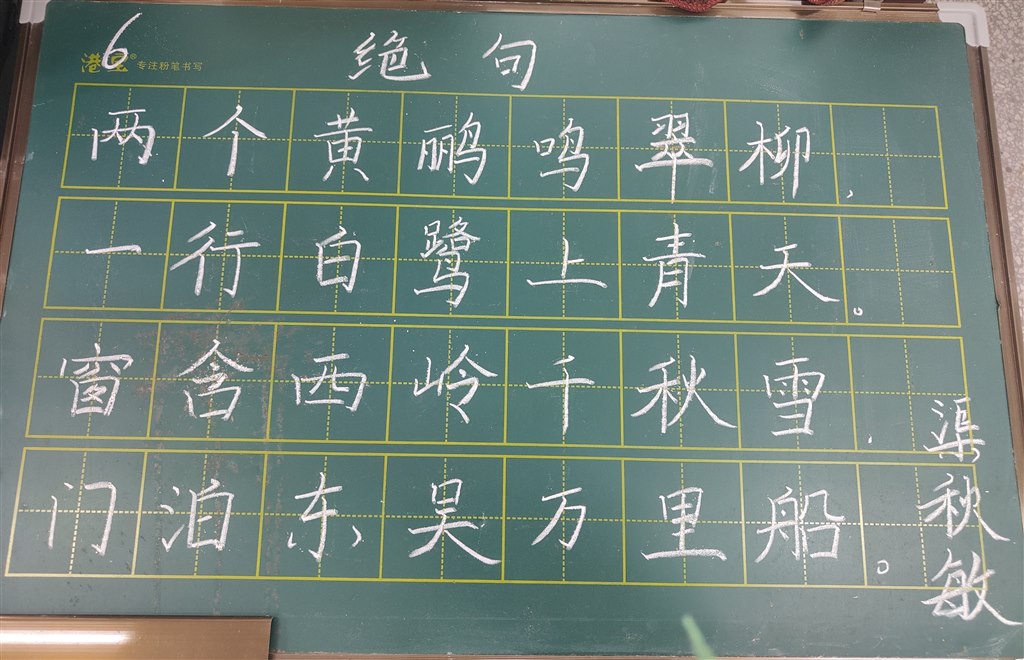 6
港 专注粉笔书写
绝句
两个黄鹂鸣翠柳，
一行白鹭上青天。
窗含西岭千秋雪，
门泊东吴万里船。
渠秋敏